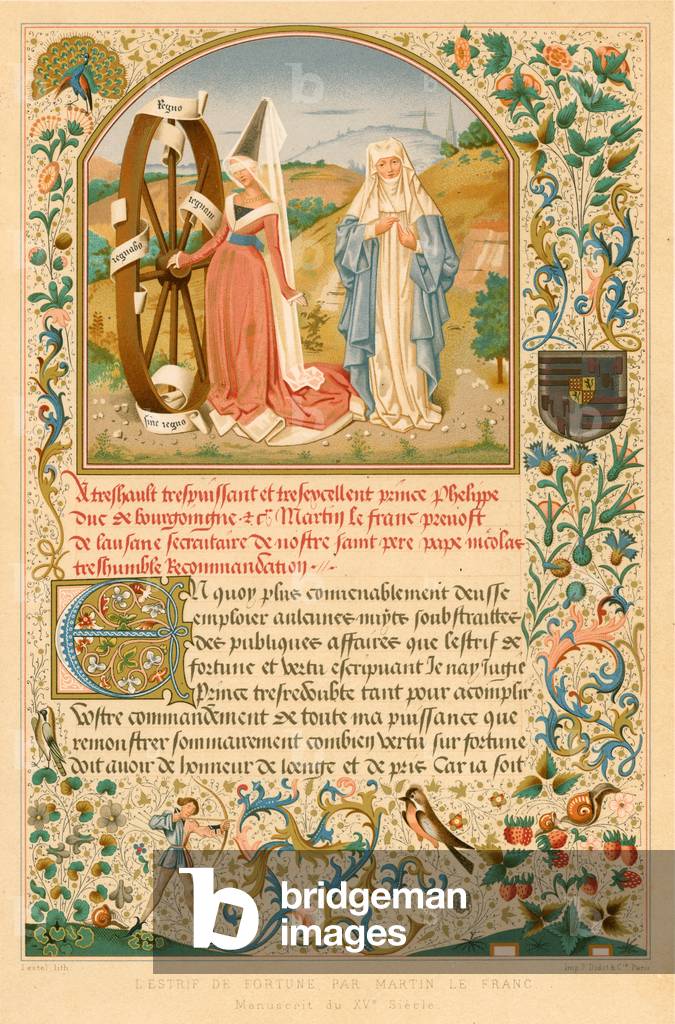 Regno
regnavi
regnabo
sine regno
A treshault trespuissant et tresexcellent prince Phelippe
duc de bourgoingne . & c̃ . Martin le franc prevost
de lausane secretaire de nostre saint pere pape nicolas
treshumble Recommandation
En quoy plus convenablement deusse
emploier aulcunes nuyts soubstraittes
des publiques affaires que lestrif de
fortune et vertu escripuant Je nay Jugie
Prince tresredoubte tant pour acomplir
vostre commandement de toute ma puissance que
remonstrer sommairement combien vertu sur fortune
doit avoir de honneur de loenge et de pris Car ia soit
b
bridgeman
images
Lestel lith.
Imp. F. Didot & Cie Paris
L'ESTRIF DE FORTUNE, PAR MARTIN LE FRANC
Manuscrit du XVe Siècle.